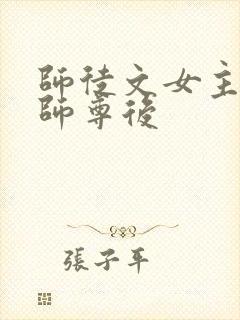 師徒文女主
師尊後
張子平